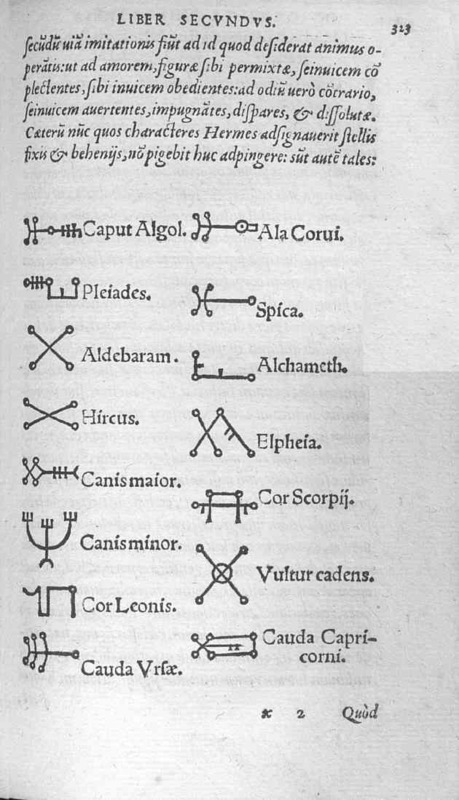 LIBER SECVNDVS.
323
secūdū uiā imitationis fiūt ad id quod desiderat animus o-
perātis: ut ad amorem, figuræ sibi permixtæ, seinuicem cō
plectentes, sibi inuicem obedientes: ad odiū uerò cōtrario,
seinuicem auertentes, impugnātes, dispares, & dissolutæ.
Cæterū nūc quos characteres Hermes adsignauerit stellis
fixis & behenijs, nō pigebit huc adpingere: sūt autē tales:
Caput Algol.
Pleiades.
Aldebaram.
Hircus.
Canis maior.
Canis minor.
Cor Leonis.
Cauda Vrsæ.
Ala Corui.
Spica.
Alchameth.
Elpheia.
Cor Scorpij.
Vultur cadens.
Cauda Capri-
corni.
x 2 Quòd